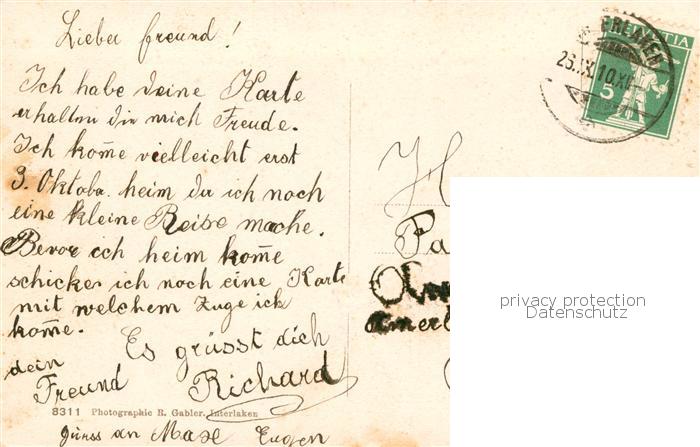 Lieber Freund!
Ich habe deine Karte
erhalten die mich Freude.
Ich kom̄e vielleicht erst
3. Oktoba. heim da ich noch
eine kleine Reise mache.
Bevor ich heim kom̄e
schicker ich noch eine Karte
mit welchem Zuge ich
kom̄e.
Es grüsst dich
dein
Freund Richard
8311 Photographie R. Gabler, Interlaken
Gruss an Max Eugen
HELVETIA
5
H
Pa
privacy protection
Datenschutz